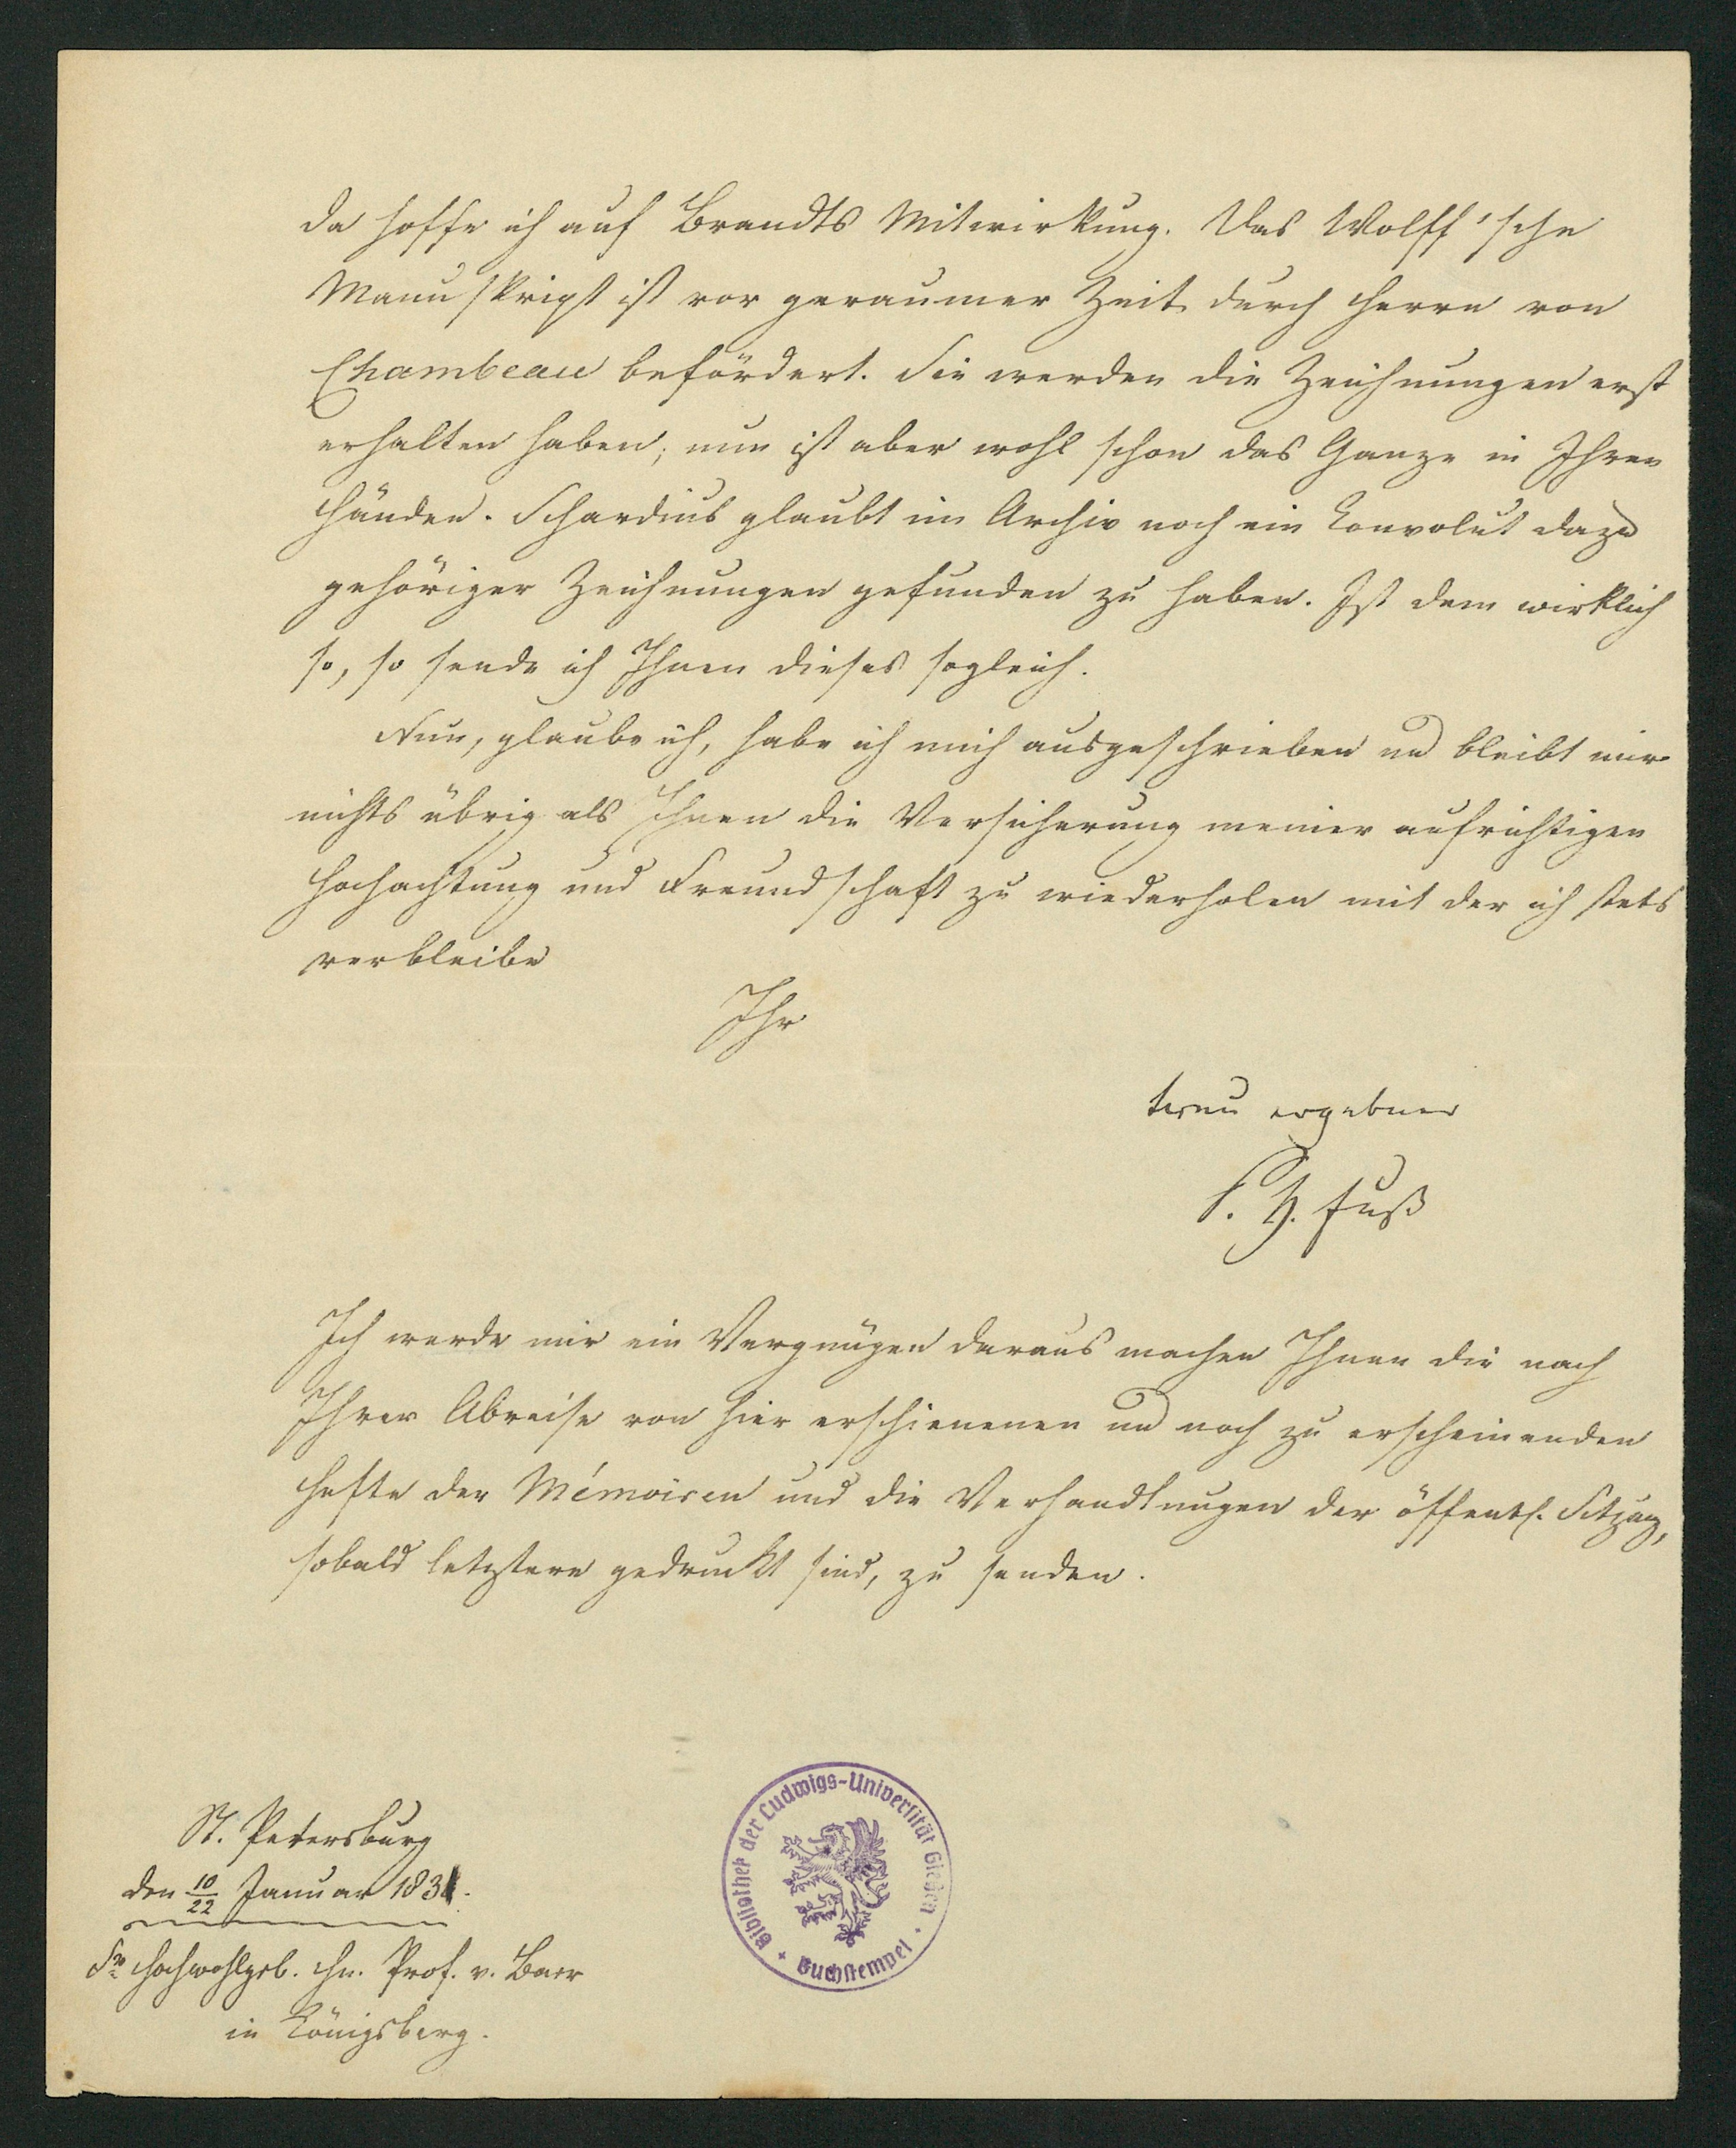 da hoffe ich auf Brandts Mitwirkung. Das Wolff'sche
Manuskript ist vor geraumer Zeit durch Herrn von
Chambeau befördert. Sie werden die Zeichnungen erst
erhalten haben; nun ist aber wohl schon das Ganze in Ihren
Händen. Schardius glaubt im Archiv noch ein Convolut dazu
gehöriger Zeichnungen gefunden zu haben. Ist dem wirklich
so, so sende ich Ihnen dieses sogleich.
Nun, glaube ich, habe ich mich ausgeschrieben und bleibt mir
nichts übrig als Ihnen die Versicherung meiner aufrichtigen
Hochachtung und Freundschaft zu wiederholen mit der ich stets
verbleibe
Ihr
treu ergebner
P. H. Fuß
Ich werde mir ein Vergnügen daraus machen Ihnen die nach
Ihrer Abreise von hier erschienenen und noch zu erscheinenden
Hefte der Mémoiren und die Verhandlungen der öffentl. Sitzung,
sobald letztere gedruckt sind, zu senden.
St. Petersburg
den 10/22 Januar 1831.
Sr Hochwohlgeb. Hn. Prof. v. Baer
in Königsberg.
Bibliothek der Ludwigs-Universität Gießen
Buchstempel